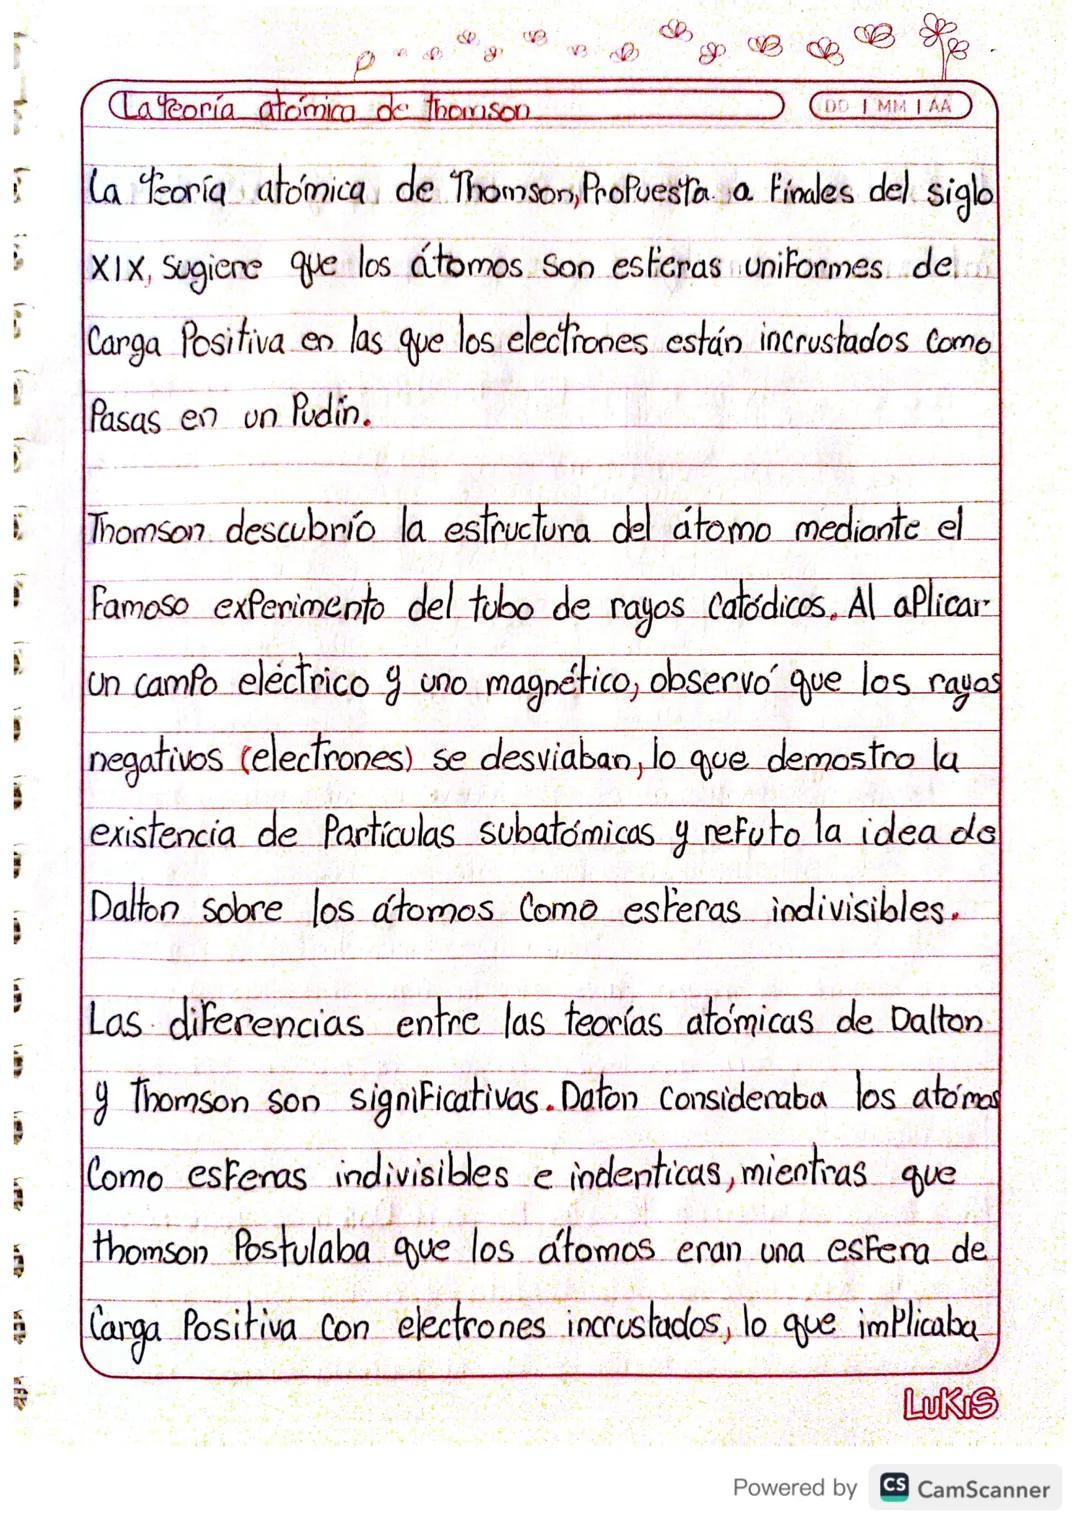 La teoría atómica de thomson
DD | MM | AA
La teoría atómica de Thomson, Propuesta a Finales del siglo
XIX, Sugiere que los átomos son esferas uniformes de
Carga Positiva en las que los electrones están incrustados Como
Pasas en un Pudín.
Thomson descubrío la estructura del átomo mediante el
Famoso experimento del tubo de rayos Catódicos. Al aplicar
un campo eléctrico y uno magnético, observó que los rayos
negativos (electrones) se desviaban, lo que demostro la
existencia de Partículas subatómicas y refuto la idea de
Dalton sobre los átomos Como esferas indivisibles.
Las diferencias entre las teorías atómicas de Dalton
y Thomson son significativas. Daton Consideraba los atómos
Como esferas indivisibles e indenticas, mientras que
thomson Postulaba que los átomos eran una esfera de
Carga Positiva con electrones incrustados, lo que implicaba
LUKIS
Powered by CS CamScanner